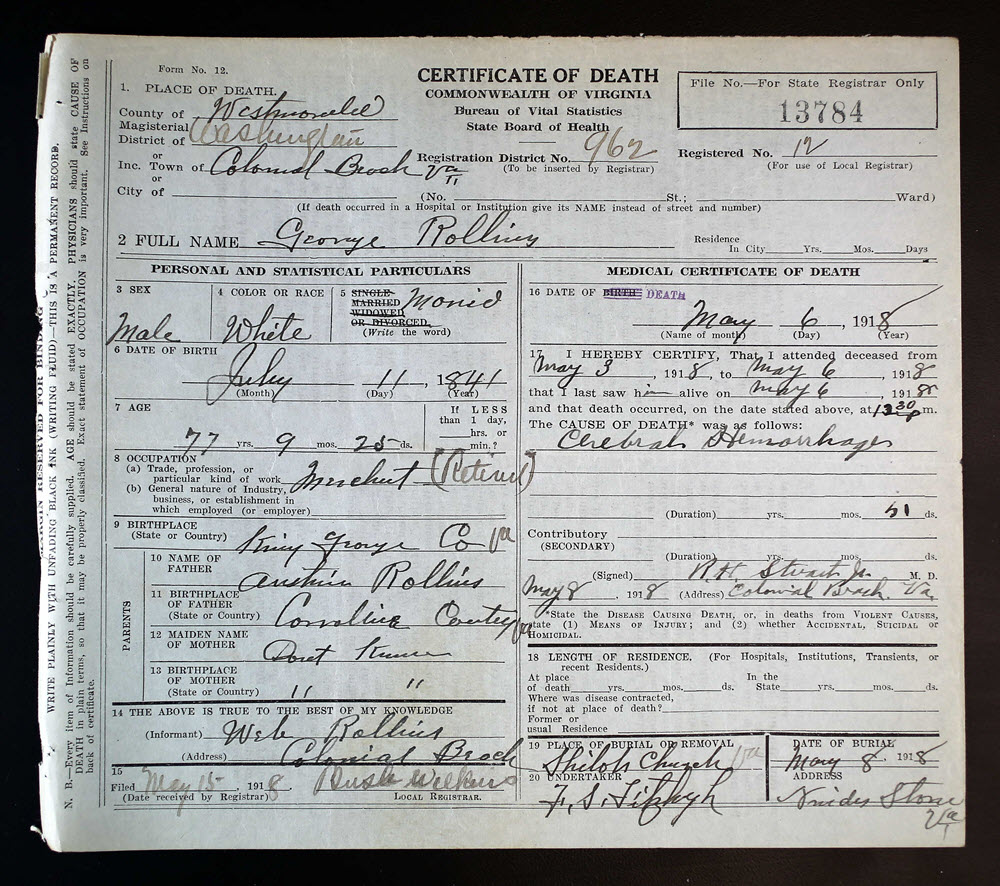 Form No. 12.
1. PLACE OF DEATH.
County of Westmoreld
Magisterial
District of Washington
or
Inc. Town of Colonial Beach Va
or
City of
CERTIFICATE OF DEATH
COMMONWEALTH OF VIRGINIA
Bureau of Vital Statistics
State Board of Health
Registration District No. 962
(To be inserted by Registrar)
File No.—For State Registrar Only
13784
Registered No. 12
(For use of Local Registrar)
(No. St.; Ward)
(If death occurred in a Hospital or Institution give its NAME instead of street and number)
2 FULL NAME George Rollins
Residence
In City Yrs. Mos. Days
PERSONAL AND STATISTICAL PARTICULARS
3 SEX
Male
4 COLOR OR RACE
White
5 SINGLE
MARRIED
WIDOWED
OR DIVORCED.
(Write the word)
6 DATE OF BIRTH
July 11, 1841
(Month) (Day) (Year)
7 AGE
77 yrs. 9 mos. 25 ds.
If LESS
than 1 day,
hrs. or
min.?
8 OCCUPATION
(a) Trade, profession, or
particular kind of work Merchent (Retired)
(b) General nature of Industry,
business, or establishment in
which employed (or employer)
9 BIRTHPLACE
(State or Country) King George Co Va
PARENTS
10 NAME OF
FATHER Rollins
11 BIRTHPLACE
OF FATHER
(State or Country) Va
12 MAIDEN NAME
OF MOTHER Dont Know
13 BIRTHPLACE
OF MOTHER
(State or Country) " "
14 THE ABOVE IS TRUE TO THE BEST OF MY KNOWLEDGE
(Informant) Web Rollins
(Address) Colonial Beach
15
Filed May 15, 1918
(Date received by Registrar) LOCAL REGISTRAR.
MEDICAL CERTIFICATE OF DEATH
16 DATE OF BIRTH DEATH
May 6, 1918
(Name of month) (Day) (Year)
17 I HEREBY CERTIFY, That I attended deceased from
May 3, 1918, to May 6, 1918
that I last saw him alive on May 6, 1918
and that death occurred, on the date stated above, at 12 30 P m.
The CAUSE OF DEATH* was as follows:
Cerebral Hemorrhage
(Duration) yrs. mos. ds.
Contributory
(SECONDARY)
(Duration) yrs. mos. ds.
(Signed) R. H. Stuart Jr. M. D.
May 8, 1918 (Address) Colonial Beach Va
*State the DISEASE CAUSING DEATH, or, in deaths from VIOLENT CAUSES,
state (1) MEANS OF INJURY; and (2) whether ACCIDENTAL, SUICIDAL or
HOMICIDAL.
18 LENGTH OF RESIDENCE. (For Hospitals, Institutions, Transients, or
recent Residents.)
At place In the
of death yrs. mos. ds. State yrs. mos. ds.
Where was disease contracted,
if not at place of death?
Former or
usual Residence
19 PLACE OF BURIAL OR REMOVAL
Shiloh Church Va
DATE OF BURIAL
May 8, 1918
20 UNDERTAKER
F. S.
ADDRESS
Va
MARGIN RESERVED FOR BINDING
WRITE PLAINLY WITH UNFADING BLACK INK (WRITING FLUID)—THIS IS A PERMANENT RECORD.
N. B.—Every item of Information should be carefully supplied. AGE should be stated EXACTLY. PHYSICIANS should state CAUSE OF
DEATH in plain terms, so that it may be properly classified. Exact statement of OCCUPATION is very important. See Instructions on
back of certificate.